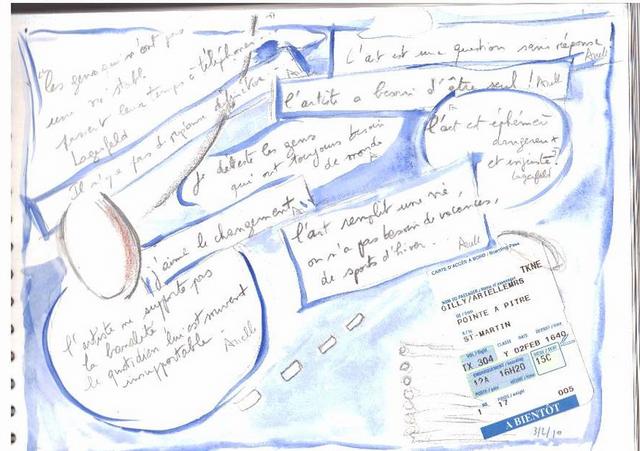 "les gens qui n'ont pas
une vie stable
passent leur temps à téléphoner.
Lagerfeld
Il n'y a pas de réponse définitive
L'art est une question sans réponse
Arielle
l'artiste a besoin d'être seul !
Arielle
l'art est éphémère
dangereux
et injuste.
Lagerfeld
Je déteste les gens
qui ont toujours besoin
de monde
j'aime le changement
l'art remplit une vie,
on n'a pas besoin de vacances,
de sports d'hiver..
Arielle
l'artiste ne supporte pas
la banalité
le quotidien lui est souvent
insupportable
Arielle
CARTE D'ACCÈS A BORD / Boarding Pass
TKNE
NOM DU PASSAGER / Name of passenger
GILLY/ARIELLEMRS
POINTE A PITRE
ST-MARTIN
VOL / flight CLASSE DATE DEPART / time
TX 304 Y 02FEB 1640
12A 16H20 15C
1 17 005
A BIENTÔT
3/2/10